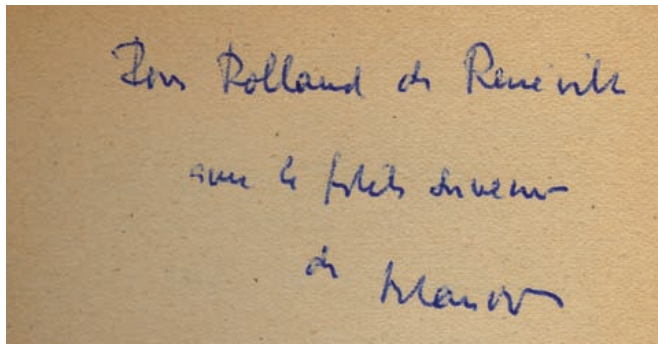 Pour Rolland de Renéville
avec le fidèle souvenir
de